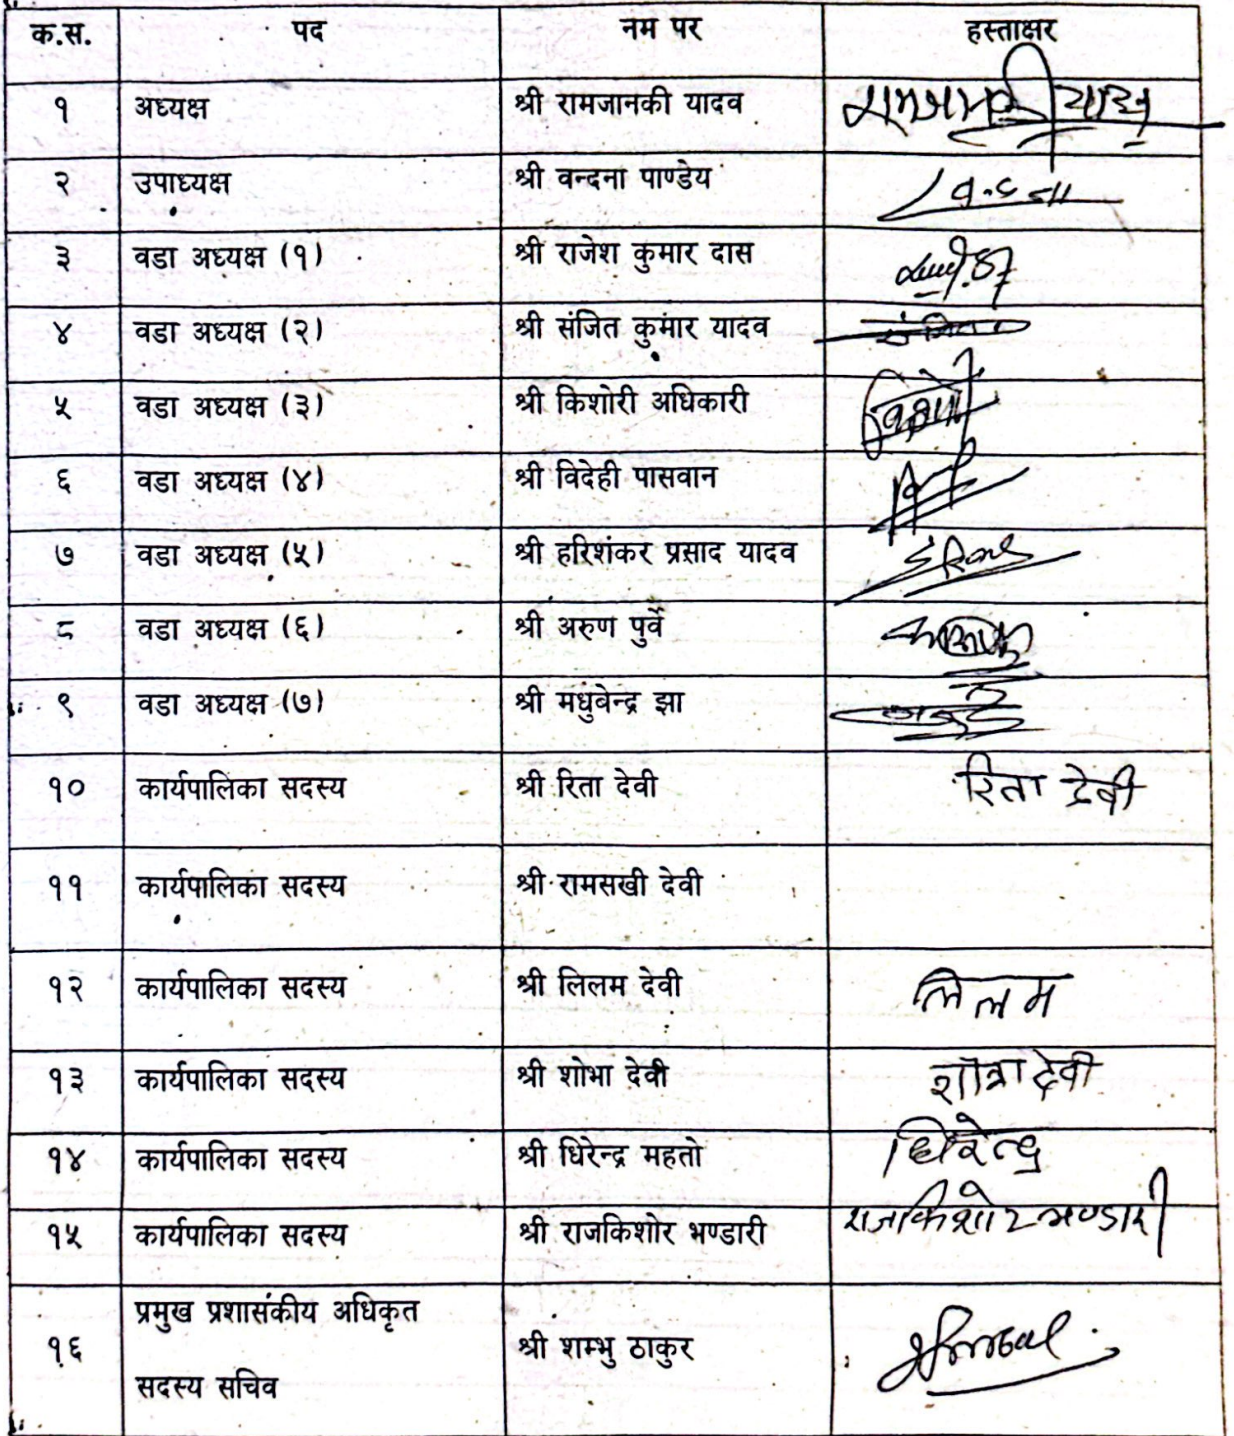 क.स. पद नम पर हस्ताक्षर
१ अध्यक्ष श्री रामजानकी यादव रामजानकी यादव
२ उपाध्यक्ष श्री वन्दना पाण्डेय
३ वडा अध्यक्ष (१) श्री राजेश कुमार दास
४ वडा अध्यक्ष (२) श्री संजित कुमार यादव
५ वडा अध्यक्ष (३) श्री किशोरी अधिकारी
६ वडा अध्यक्ष (४) श्री विदेही पासवान
७ वडा अध्यक्ष (५) श्री हरिशंकर प्रसाद यादव
८ वडा अध्यक्ष (६) श्री अरुण पुर्वे
९ वडा अध्यक्ष (७) श्री मधुबेन्द्र झा
१० कार्यपालिका सदस्य श्री रिता देवी रिता देवी
११ कार्यपालिका सदस्य श्री रामसखी देवी
१२ कार्यपालिका सदस्य श्री लिलम देवी लिलम
१३ कार्यपालिका सदस्य श्री शोभा देवी देवी
१४ कार्यपालिका सदस्य श्री धिरेन्द्र महतो धिरेन्द्र
१५ कार्यपालिका सदस्य श्री राजकिशोर भण्डारी राजकिशोर भण्डारी
प्रमुख प्रशासंकीय अधिकृत
१६ श्री शम्भु ठाकुर
सदस्य सचिव